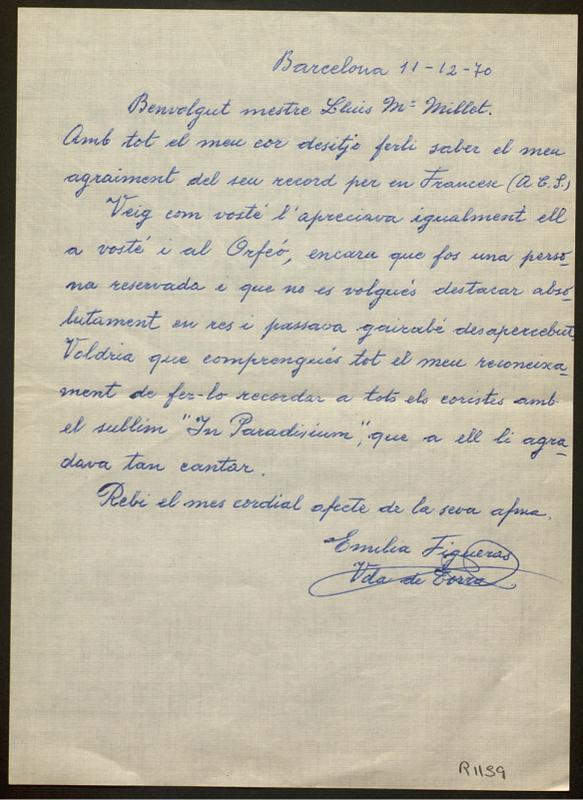 Barcelona 11-12-70
Benvolgut mestre Lluis Mª Millet.
Amb tot el meu cor desitjo ferli saber el meu
agraiment del seu record per en Francesc (A.C.S.)
Veig com vosté l'apreciava igualment ell
a vosté i al Orfeó, encara que fos una perso-
na reservada i que no es volgués destacar abso-
lutament en res i passava gairabé desapercebut.
Voldria que comprengués tot el meu reconeixa-
ment de fer-lo recordar a tots els coristes amb
el sublim "In Paradisium", que a ell li agra-
dava tan cantar.
Rebi el mes cordial afecte de la seva afma.
Emilia Figueras
Vda de Torra
R1159